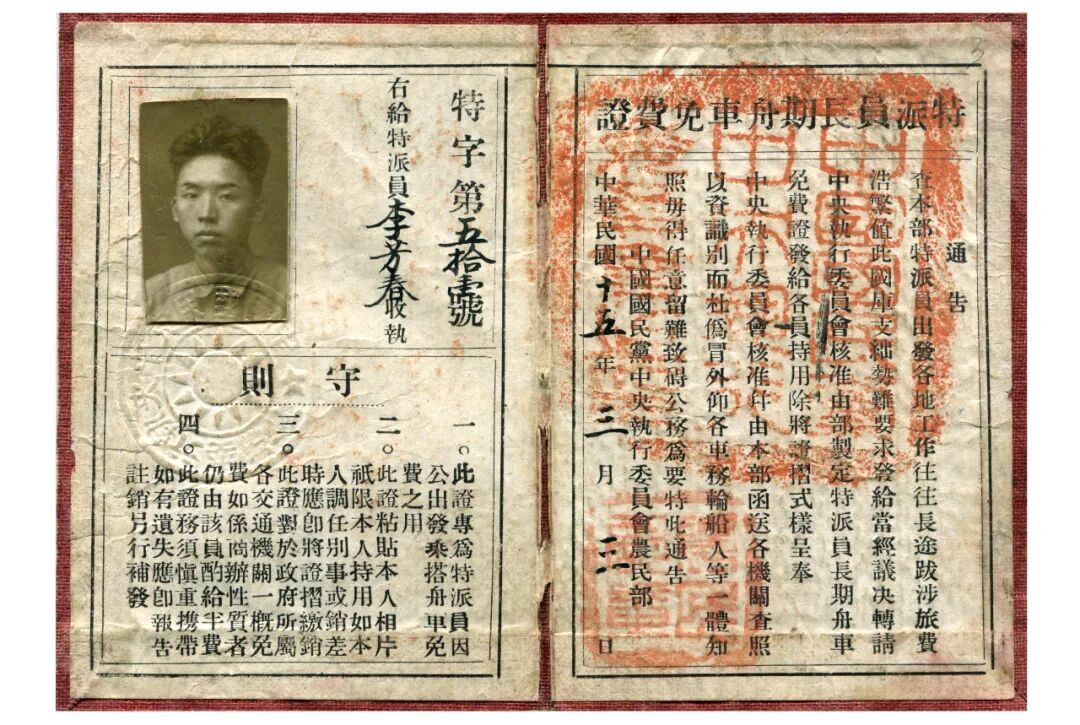 特派員長期舟車免費證
通告
查本部特派員出發各地工作往往長途跋涉旅費
浩繁値此國庫支絀勢難要求發給當經議决轉請
中央執行委員會核准由部製定特派員長期舟車
免費證發給各員持用除將證摺式樣呈奉
中央執行委員會核准幷由本部函送各機關查照
以資識別而杜僞冒外仰各車務輪船人等一體知
照毋得任意留難致碍公務爲要特此通告
中國國民黨中央執行委員會農民部
中華民國十五年三月三日
特字第五拾壹號
右給特派員李芳春收執
守則
一。此證專爲特派員因
公出發乘搭舟車免
費之用
二。此證粘貼本人相片
祇限本人持用如本
人調任別事或銷差
時應卽將證摺繳銷
三。此證對於政府所屬
各交通機關一概免
費如係商辦性質者
仍由該員酌給半費
四。此證務須愼重携帶
如有遺失應卽報告
註銷另行補發
3